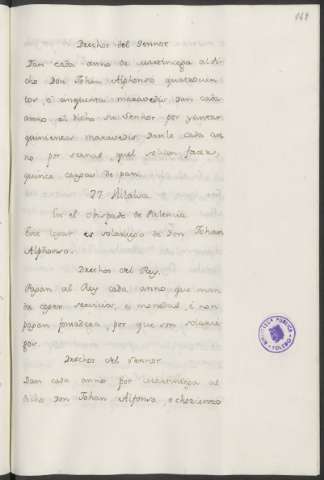 168
Drechos del Sennor
Dan cada anno de martiniega al di-
cho Don Johan Alphonso quatrocien-
tos, e cinquenta maravedis. Dan cada
anno al dicho su Sennor por yantar
quinientos maravedis. Danle cada an-
no por sernas, quel solian facer,
quince cargas de pan.
27. Villalva
En el obispado de Palencia
Este logar es solariego de Don Johan
Alphonso.
Drechos del Rey.
Pagan al Rey cada anno que man-
da coger servicios, e monedas, e non
pagan fonsadera, por que son solarie-
gos.
Drechos del Sennor
Dan cada anno por martiniega al
dicho Don Johan Alfonso, ochocientos
BIBLIOTECA PUBLICA
TOLEDO